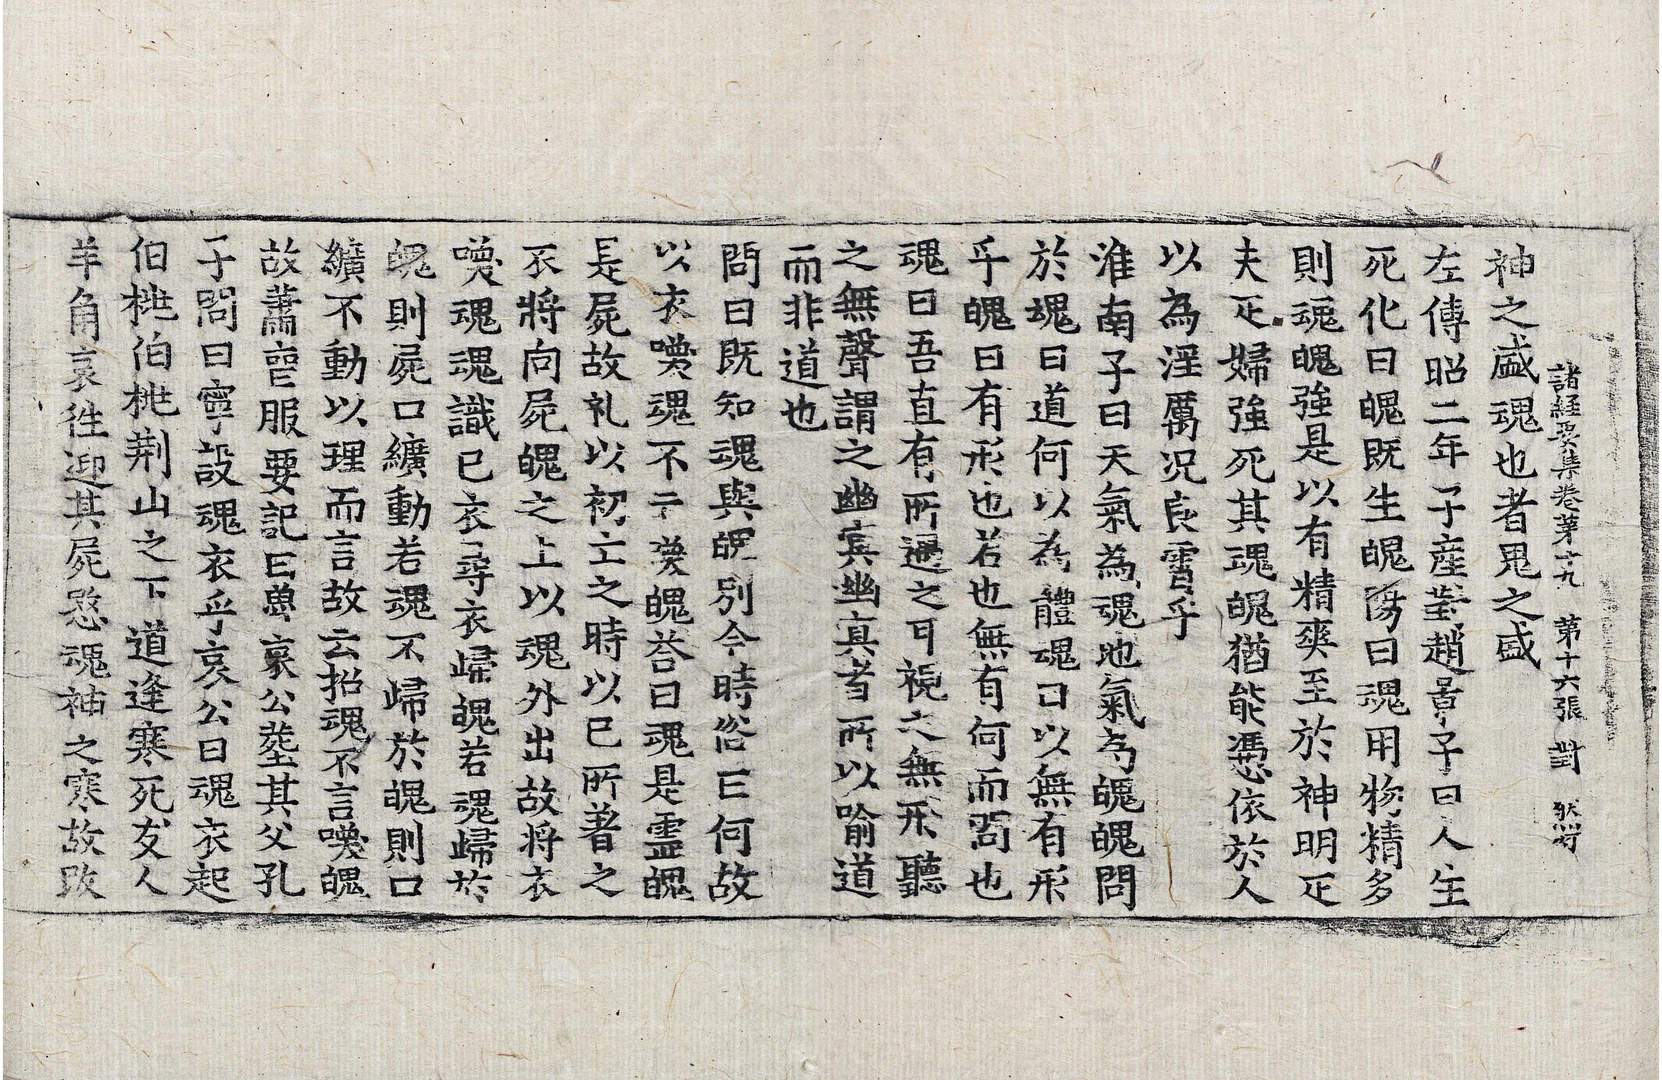 諸經要集卷第十九 第十六張 對
神之盛魂也者鬼之盛
左傳昭二年子産對趙景子曰人生
死化曰魄既生魄陽曰魂用物精多
則魂魄強是以有精爽至於神明疋
夫疋婦強死其魂魄猶能憑依於人
以為淫厲况良霄乎
淮南子曰天氣為魂地氣為魄魄問
於魂曰道何以為體魂曰以無有形
乎魄曰有形也若也無有何而問也
魂曰吾直有所遇之耳視之無形聽
之無聲謂之幽冥幽冥者所以喻道
而非道也
問曰既知魂與魄別今時俗亡何故
以衣喚魂不云喚魄荅曰魂是靈魄
是屍故礼以初亡之時以已所著之
衣將向屍魄之上以魂外出故將衣
喚魂魂識已衣尋衣歸魄若魂歸於
魄則屍口纊動若魂不歸於魄則口
纊不動以理而言故云招魂不言喚魄
故蕭喪服要記曰魯哀公葬其父孔
子問曰寧設魂衣乎哀公曰魂衣起
伯桃伯桃荆山之下道逢寒死友人
羊角哀往迎其屍愍魂神之寒故改